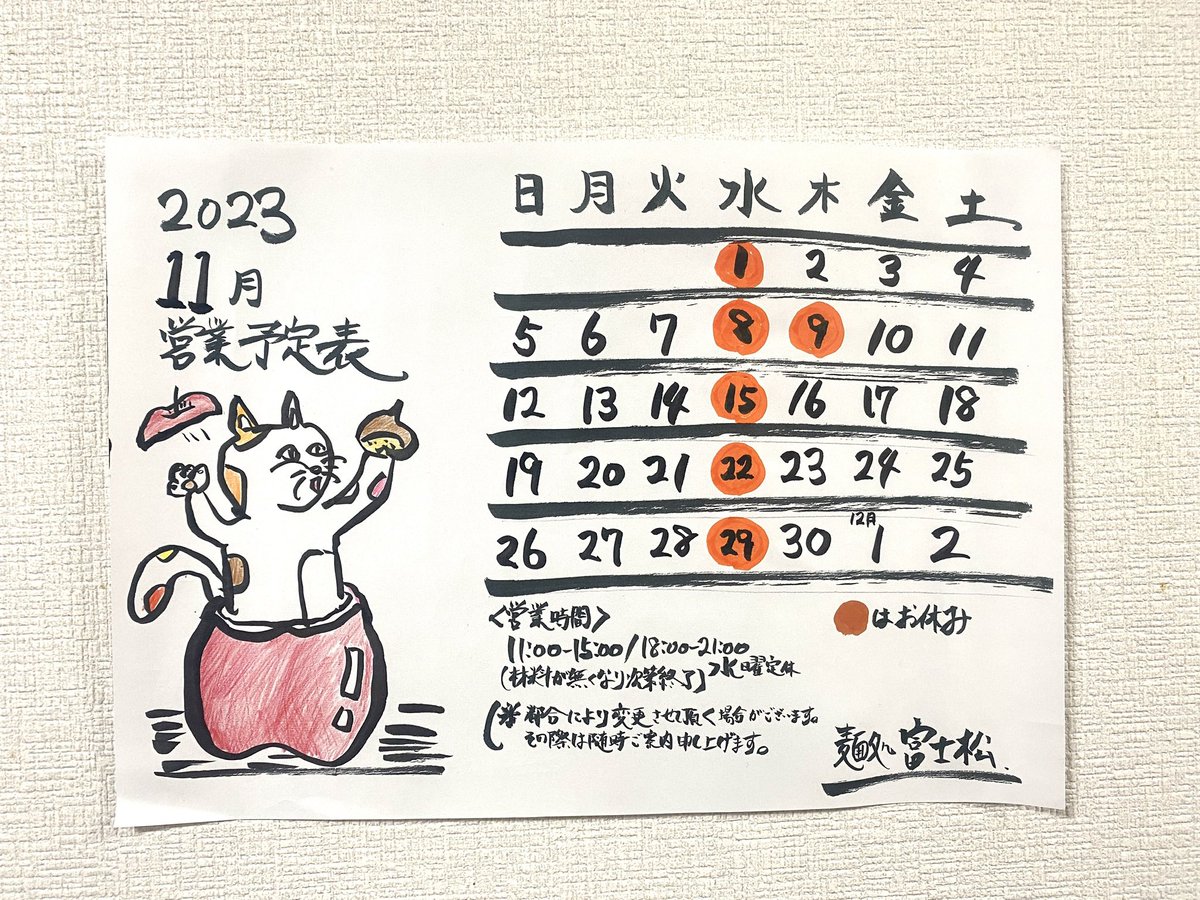 2023
11月
営業予定表
日 月 火 水 木 金 土
1 2 3 4
5 6 7 8 9 10 11
12 13 14 15 16 17 18
19 20 21 22 23 24 25
26 27 28 29 30 12月1 2
<営業時間>
11:00-15:00/18:00-21:00
(材料が無くなり次第終了)水曜定休
※都合により変更させて頂く場合がございます。
その際は随時ご案内申し上げます。
はお休み
麺処 富士松.